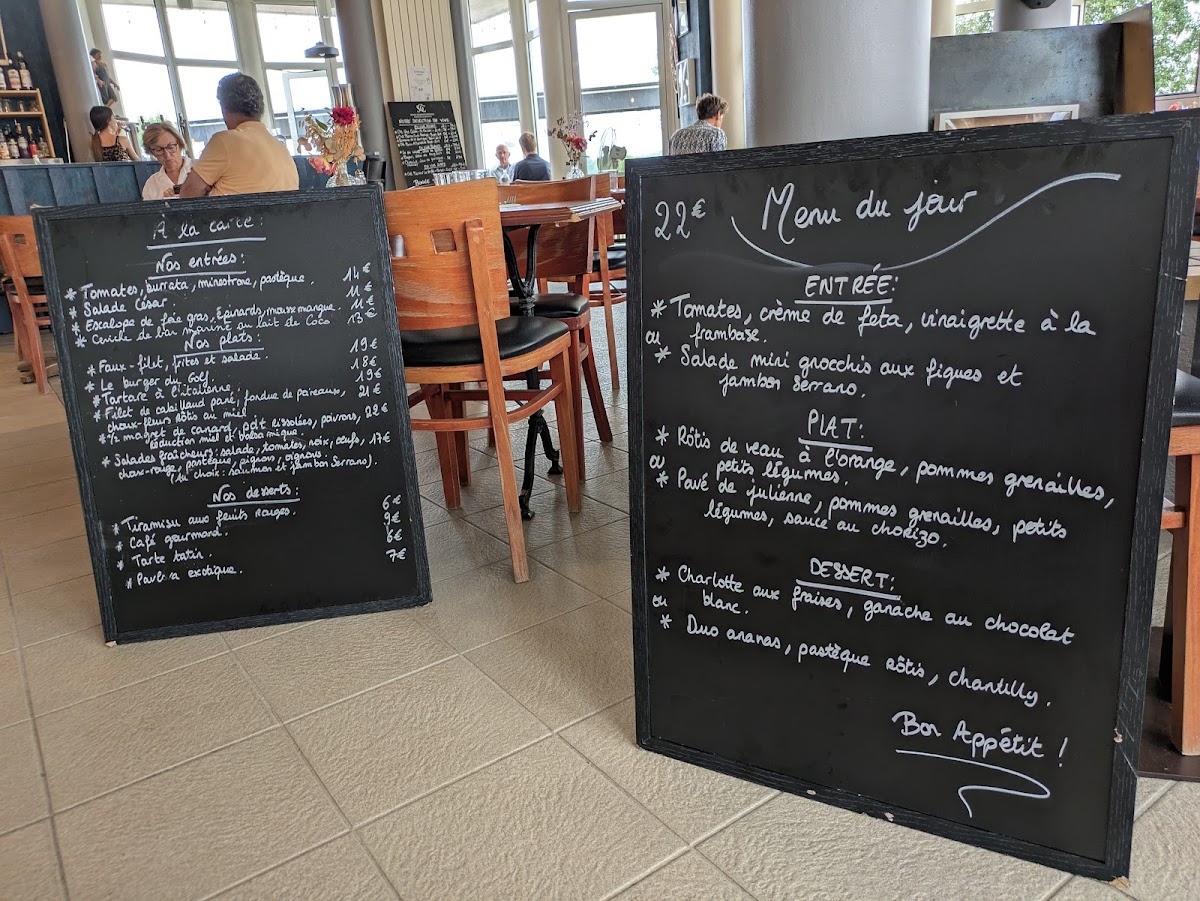 À la carte :
Nos entrées :
* Tomates, burrata, minestrone, pastèque. 14€
* Salade César. 11€
* Escalope de foie gras, épinards, mousse mangue. 11€
* Ceviche de lieu mariné au lait de Coco 13€
Nos plats :
* Faux-filet, frites et salade. 19€
* Le burger du Golf. 18€
* Tartare à l'italienne. 19€
* Filet de cabillaud pané, fondue de poireaux, 21€
choux-fleurs rôtis au miel
* 1/2 magret de canard, pdt rissolées, poivrons, 22€
réduction miel et balsamique.
* Salades fraîcheurs : salade, tomates, noix, oeufs, 17€
chou-rouge, pastèque, pignons, oignons.
(au choix : saumon et jambon Serrano).
Nos desserts :
* Tiramisu aux fruits rouges. 6€
* Café gourmand. 9€
* Tarte tatin. 6€
* Pavlova exotique. 7€
22€ Menu du jour
ENTRÉE :
* Tomates, crème de feta, vinaigrette à la
ou framboise.
* Salade mini gnocchis aux figues et
jambon serrano.
PLAT :
* Rôtis de veau à l'orange, pommes grenailles,
ou petits légumes.
* Pavé de julienne, pommes grenailles, petits
légumes, sauce au chorizo.
DESSERT :
* Charlotte aux fraises, ganache au chocolat
ou blanc.
* Duo ananas, pastèque rôtis, chantilly.
Bon Appétit !